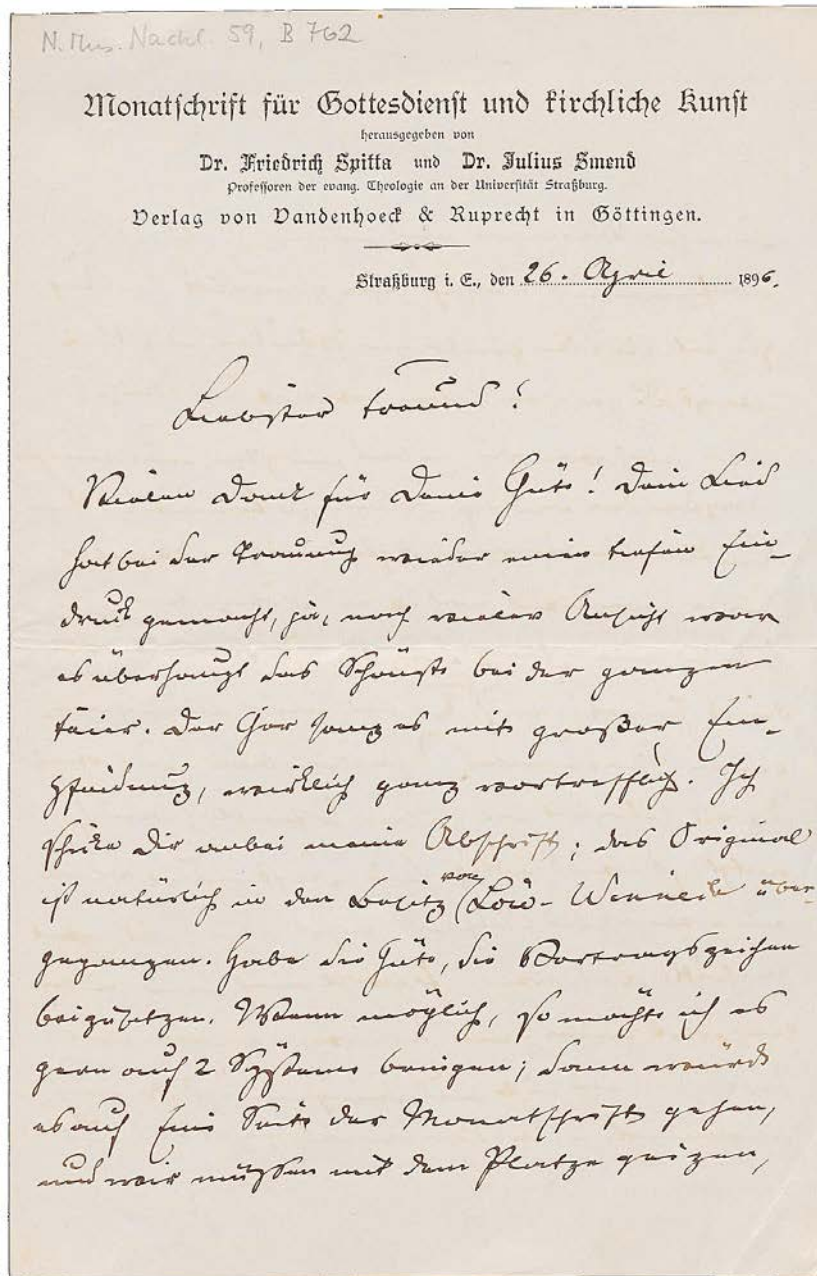 N. Mus. Nachl. 59, B 762
Monatschrift für Gottesdienst und kirchliche Kunst
herausgegeben von
Dr. Friedrich Spitta und Dr. Julius Smend
Professoren der evang. Theologie an der Universität Straßburg.
Verlag von Vandenhoeck & Ruprecht in Göttingen.
Straßburg i. E., den 26. April 1896.
Liebster Freund!
Vielen Dank für Deine Güte! Dein Lied
hat bei der Trauung wieder einen tiefen Ein-
druck gemacht, ja, nach vieler Ansicht war
es überhaupt das Schönste bei der ganzen
Feier. Der Chor sang es mit großer Em-
pfindung, wirklich ganz vortrefflich. Ich
schicke Dir anbei meine Abschrift; das Original
ist natürlich in den Besitz von über-
gegangen. Habe die Güte, die Vortragszeichen
beizusetzen. Wenn möglich, so möchte ich es
gern auf 2 Systeme bringen; dann würde
es auf Eine Seite der Monatschrift gehen,
und wir müssen mit dem Platze geizen,